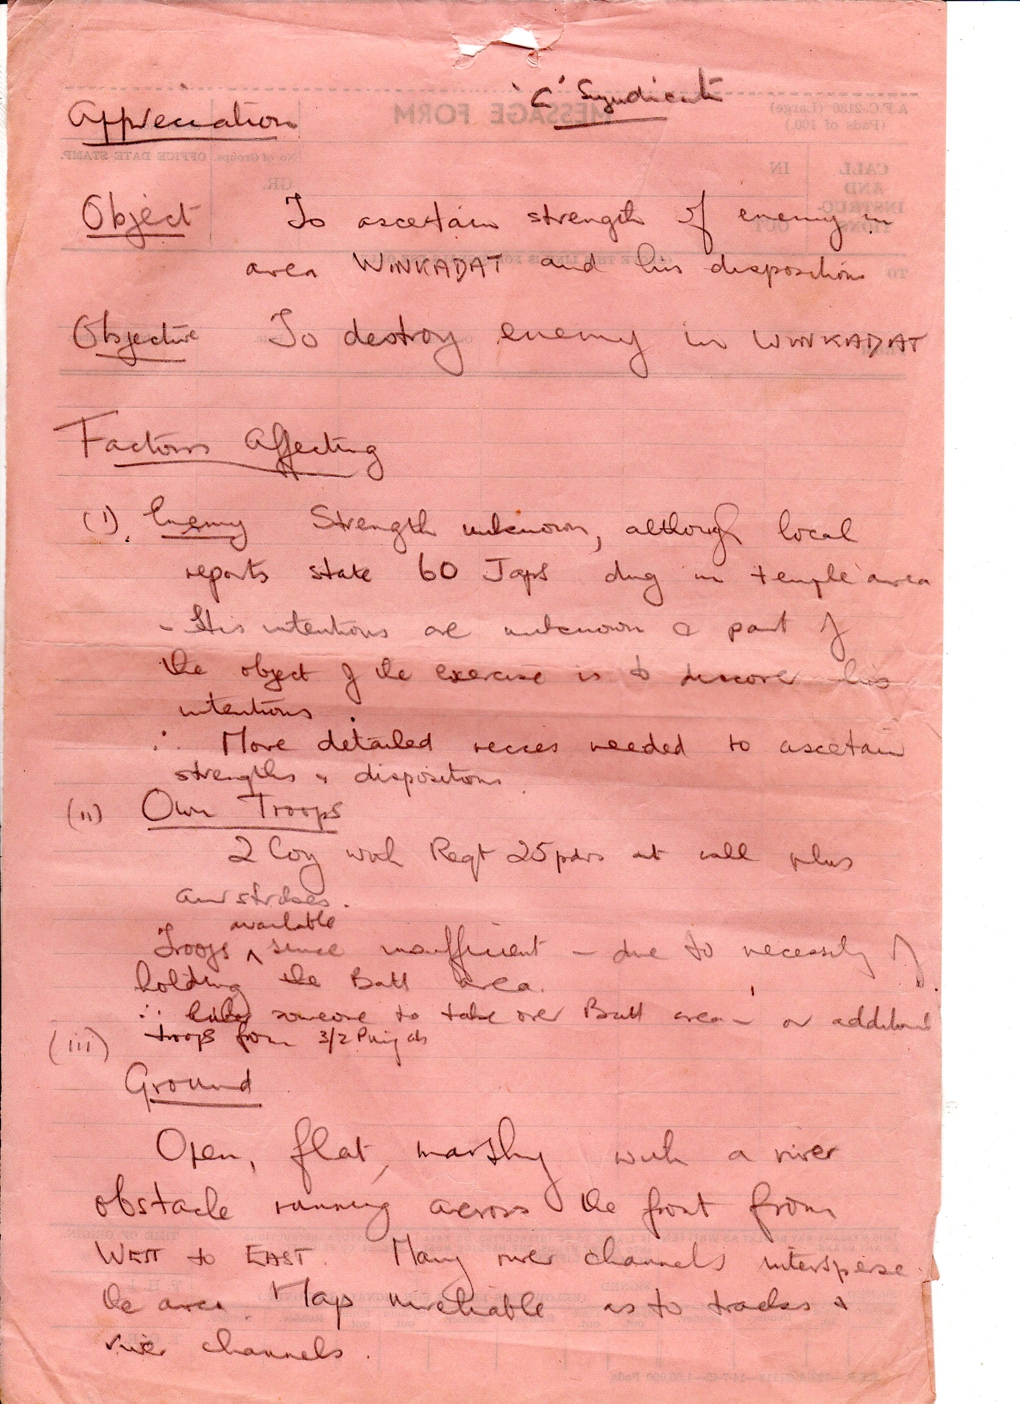 'C' Syndicate
Appreciation
Object To ascertain strength of enemy in
area WINKADAT and his dispositions
Objective To destroy enemy in WINKADAT
Factors Affecting
(i). Enemy Strength unknown, although local
reports state 60 Japs dug in temple area
- His intentions are unknown & part of
the object of the exercise is to discover his
intentions.
∴ More detailed recces needed to ascertain
strengths & dispositions.
(ii) Own Troops
2 Coy with Regt 25pdrs at call plus
airstrikes.
available
Troops ^ since insufficient - due to necessity of
holding the Batt area.
∴ someone to take over Batt area - or additional
troops from 3/2 Punjabs
(iii)
Ground
Open, flat, marshy with a river
obstacle running across the front from
WEST to EAST. Many river channels intersperse
the area. Maps unreliable as to tracks &
river channels.
MESSAGE FORM
CALL
AND
INSTRUC-
TIONS
IN
OUT
GR.
No. of Groups.
OFFICE DATE STAMP.
TO